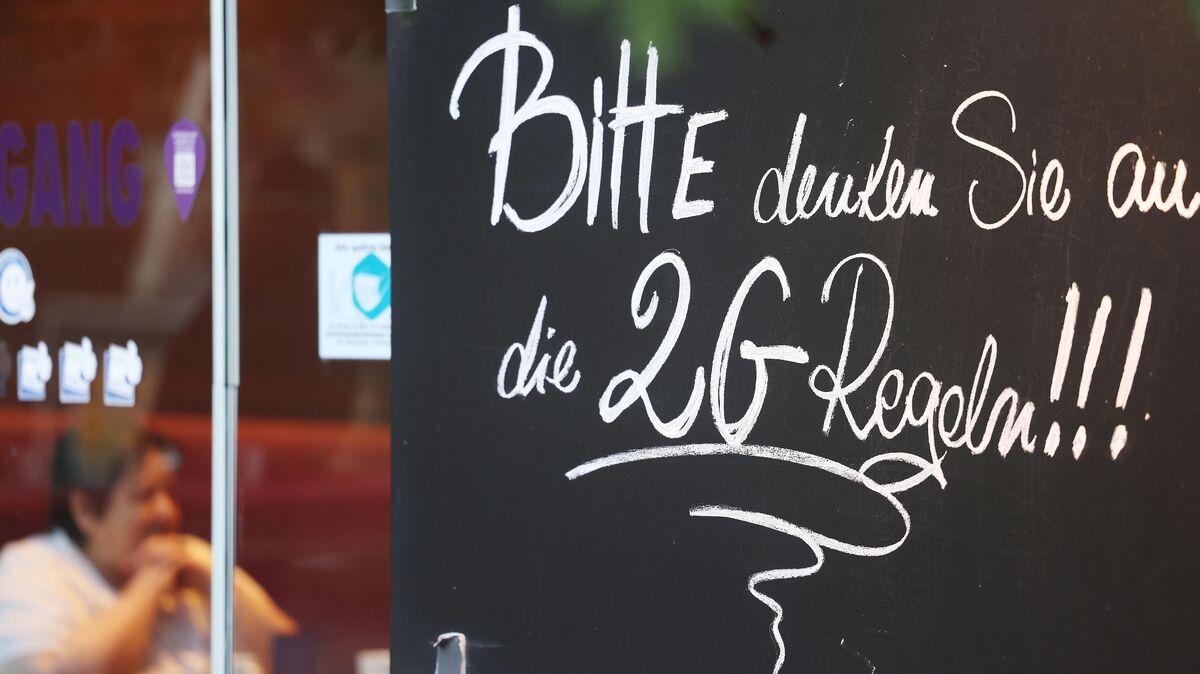 Bitte denken Sie au
die 2G Regeln!!!
GANG